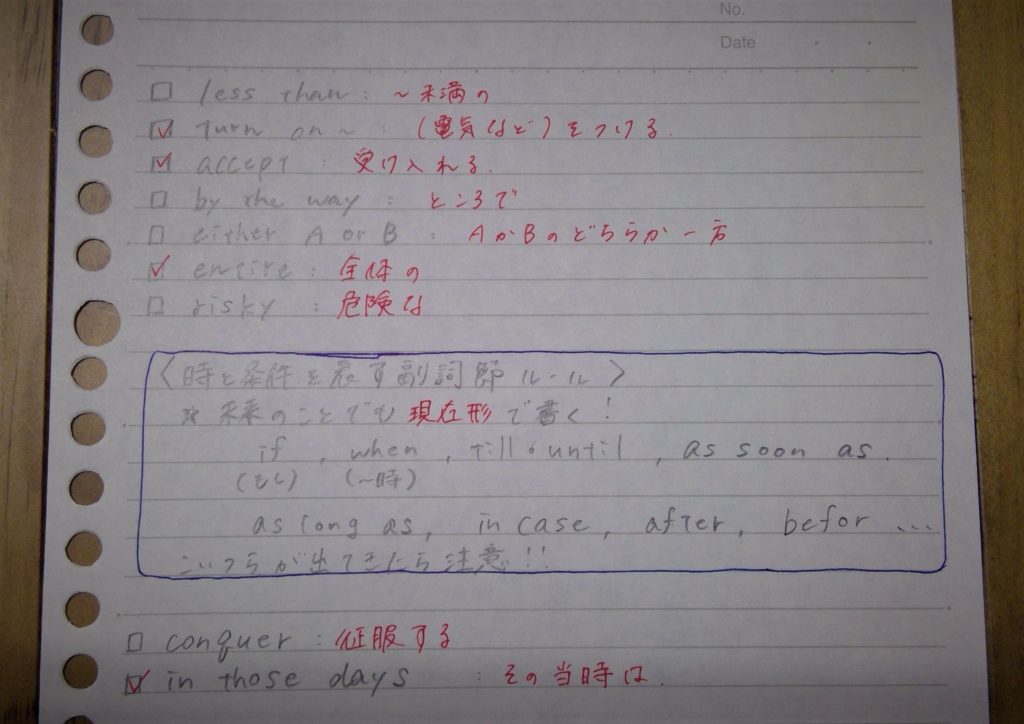 No.
Date
□ less than : ~未満の
☑ turn on ~ : (電気など)をつける.
☑ accept : 受け入れる.
□ by the way : ところで
□ either A or B : AかBのどちらか一方
☑ entire : 全体の
□ risky : 危険な
〈時と条件を表す副詞節ルール〉
※ 未来のことでも現在形で書く!
if , when , till・until , as soon as.
(もし) (~時)
as long as, in case, after, befor ...
こいつらが出てきたら注意!!
□ conquer : 征服する
☑ in those days : その当時は.